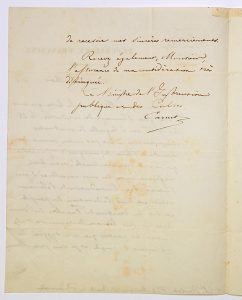 de recevoir mes sincères remerciements.
Recevez également, Monsieur,
l'assurance de ma considération très
distinguée.
Le Ministre de l'Instruction
publique et des Cultes
Carnot